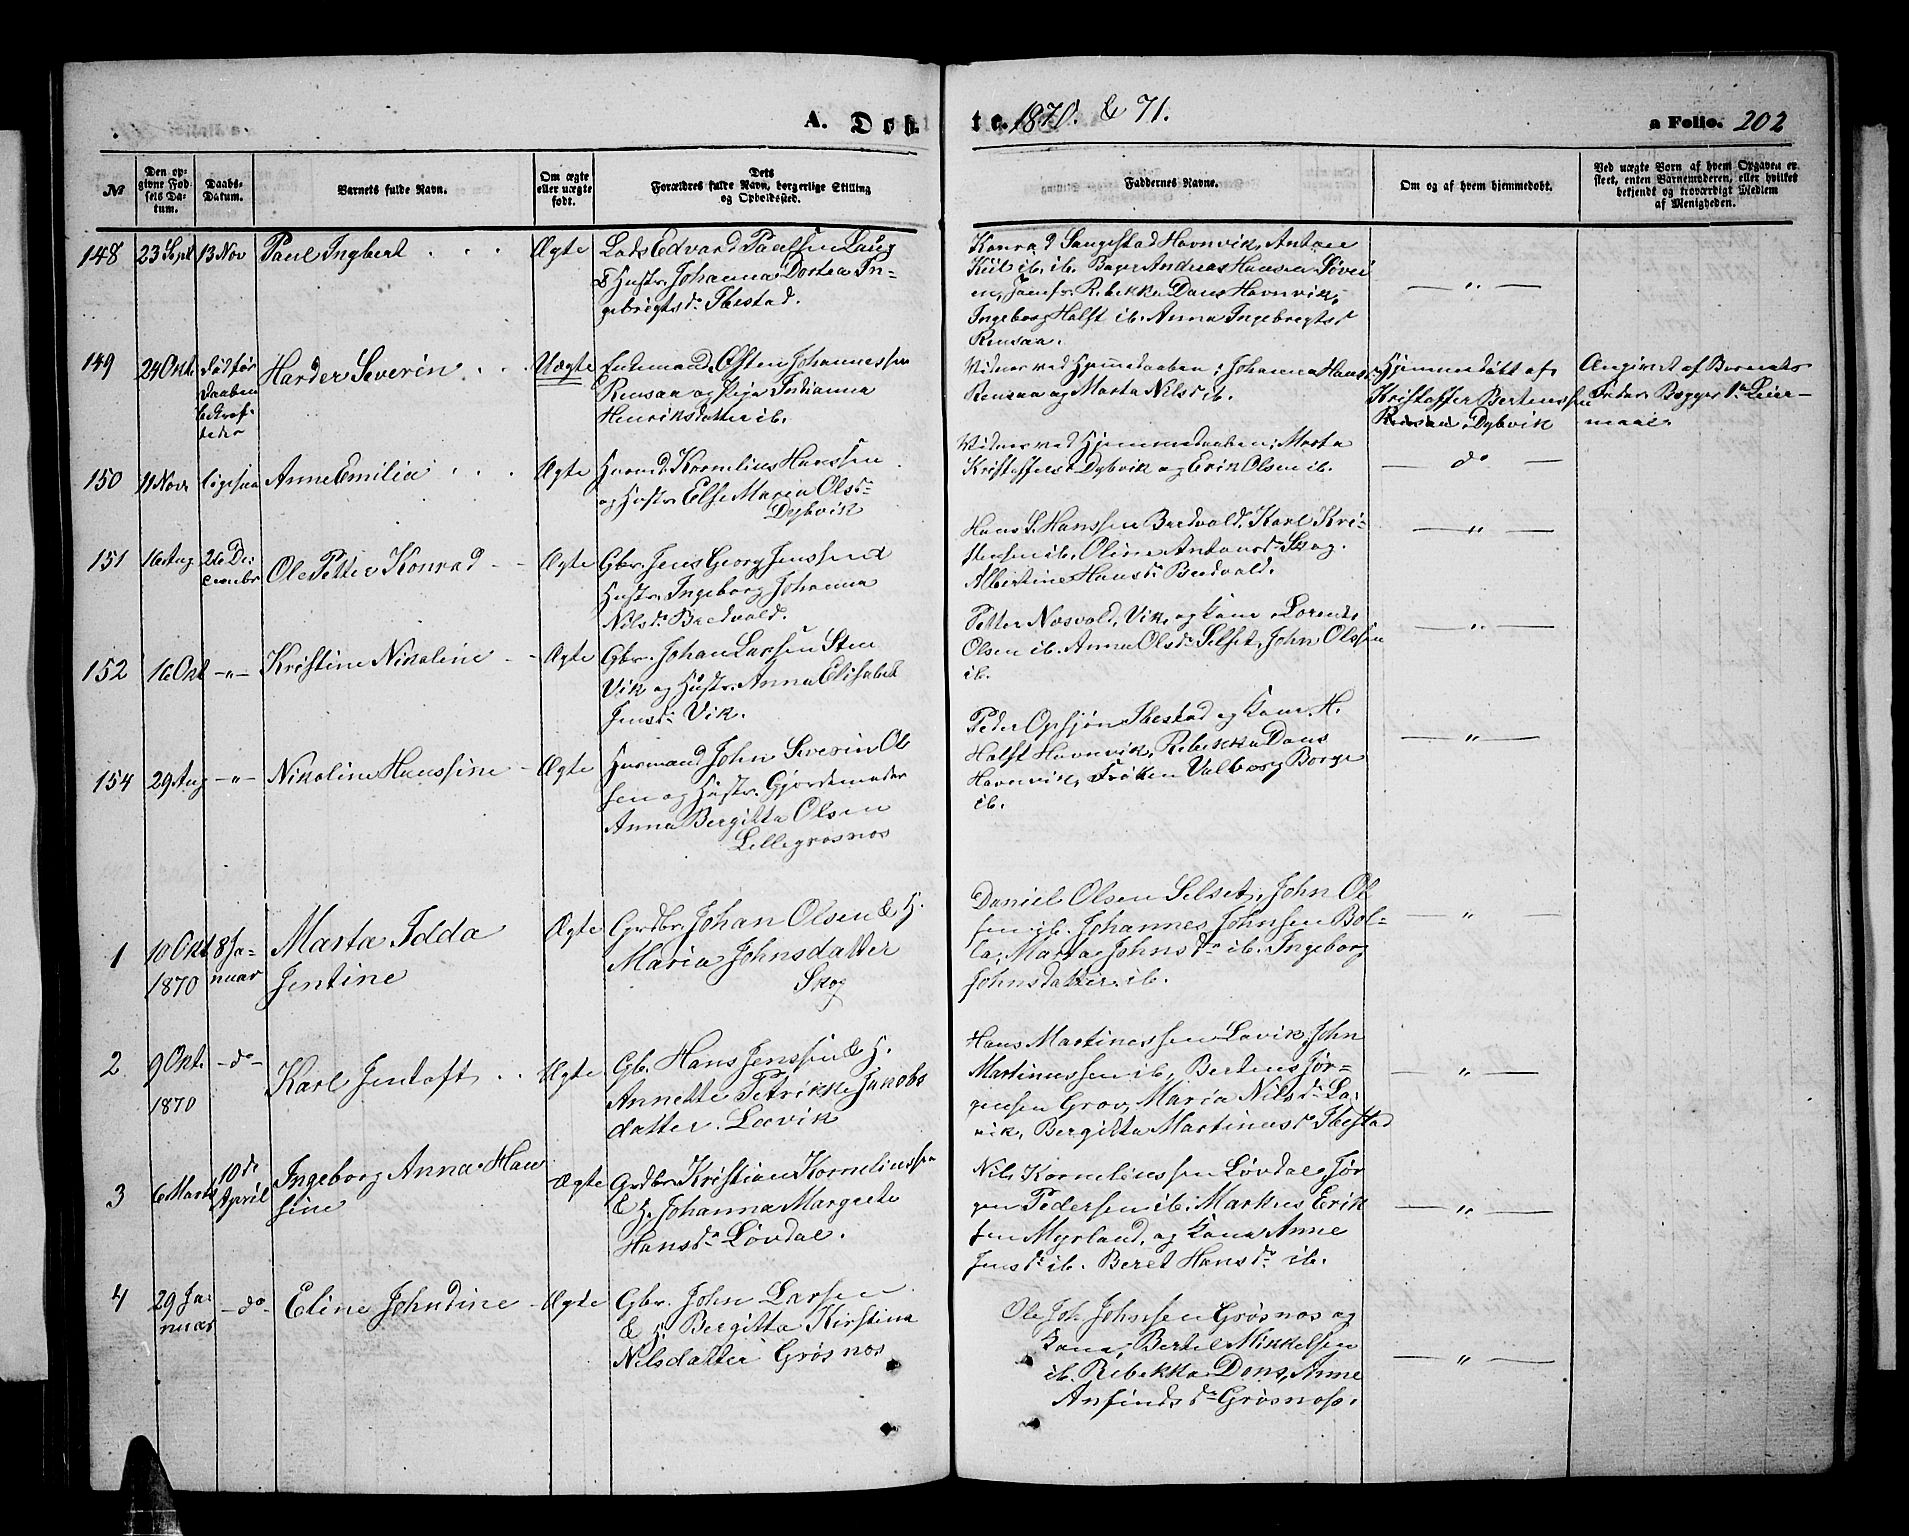 A. Døb-
te. 1870. & 71.
a Folio. 202
№
Den op-
givne Fød-
sels Da-
tum.
Daabs-
Datum.
Barnets fulde Navn.
Om ægte
eller uægte
født.
Dets
Forældres fulde Navn, borgerlige Stilling
og Opholdssted.
Faddernes Navne.
Om og af hvem hjemmedøbt.
Ved uægte Børn af hvem Opgaven er
skeet, enten Barnemoderen, eller hvilket
bekjendt og troværdigt Medlem
af Menigheden.
148 23 Sept 13 Nov Paul Ingbert Ægte
Lods Edvard Paulsen Laug
& Hustr. Johanna Dortea In-
gebrigtsdr Ibestad.
Konrad Saugestad Havnvik, Antone
Kiil ib. ib. Bager Andreas Hansen Søvei
en, Jomfr. Rebekka Dons Havnvik,
Ingeborg Holst ib. Anna Ingebregtsd
Rensaa.
— " —
149 24 Okt død før
Daaben
bekræf-
tedes
Harder Severin Uægte
Enkemand Østen Johannessen
Rensaa og Pige Indianna
Henriksdatter ib.
Vidner ved Hjemmedaaben: Johanna Hansd
Rensaa og Marta Nilsd ib.
Hjemmedøbt af
Kristoffer Bertheussen
Rensaa, Dybvik
Angivet af Barnets
Fader. Begges 1ste Leier-
maal.
150 11 Nov ligesaa Anne Emilia Ægte
Husmd. Kornelius Hanssen
og Hustr. Else Maria Olsdr
Dybvik
Vidner ved Hjemmedaaben: Marta
Kristoffersd Dybvik og Erik Olsen ib.
— do —
151 16 Aug 26 De-
cembr
Ole Petter Konrad Ægte
Gbr. Jens Georg Jenssen &
Hustr. Ingeborg Johanna
Nilsdr Bredvold.
Hans S. Hanssen Bredvold, Karl Kri-
stensen ib. Oline Antonsdr Skog.
Albertine Hansdr Bredvold.
— " —
152 16 Okt -"- Kristine Nikoline Ægte
Gbr. Johan Larsen Sten
Vik og Hustr. Anna Elisabet
Jensdr Vik.
Petter Næsvold, Vik, og Kone, Lorents
Olsen ib. Anna Olsdr Selset, John Olssen
ib.
— " —
154 29 Aug -"- Nikoline Hanssine Ægte
Husmand John Severin Ol
sen og Hustr. Gjordemoder
Anna Bergitta Olsen
Lillegrøsnæs
Peder Opsjøn Ibestad og Kone, H.
Holst Havnvik, Rebekka Dons
Havnvik, Frøken Valborg Borge
ib.
— " —
1 10 Okt
1870
8 Ja-
nuar
Marta Idda
Jentine
Ægte
Grdbr. Johan Olsen & H.
Maria Johnsdatter
Skog
Daniel Olsen Selset, John Ol
sen ib. Johannes Johnsen Bol-
la, Marta Johnsdr ib. Ingeborg
Johnsdatter ib.
— " —
2 9 Okt.
1870
-do-
Karl Jentoft Ægte
Gb. Hans Jenssen & H.
Annette Petrikke Jakobs
datter. Løvik
Hans Martinussen Løvik, John
Martinussen ib, Bertens Jør-
gensen Grov, Maria Nilsdr Lø-
vik, Bergitta Martinusdr Ibestad
— " —
3 6 Marts 10de
April
Ingeborg Anna Han
sine
Ægte
Grdbr. Kristian Korneliussen
& H. Johanna Margrete
Hansdr Løvdal.
Nils Korneliussen Løvdal, Jør
gen Pedersen ib. Markus Erik
sen Myrland, og Kona Anne
Jensdr ib. Beret Hansdr ib.
— " —
4 29 Ja-
nuar
-do- Eline Johndine Ægte
Gbr. John Larsen
& H. Bergitta Kirstina
Nilsdatter Grøsnæs
Ole Joh. Johnsen Grøsnæs og
Kona, Bertel Mikkelsen
ib. Rebekka Dons, Anne
Anfindsdr Grøsnæss.
— " —